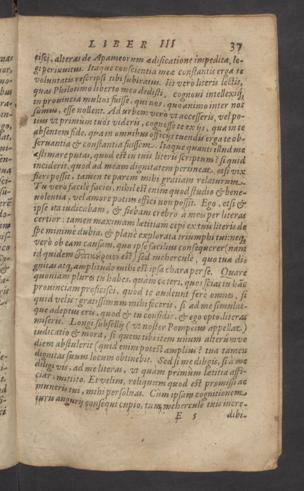 LIBER III 37
eisq́, alteras de Apameorum ædificatione impedita, le-
gi perinuitus. Itaque conscientia mea constantis erga te
voluntatis rescripsi tibi subiratus. Iis verò literis lectis,
quas Philotimo liberto meo dedisti, cognoui intellexiq́,
in prouincia multos fuisse, qui nos, quo animo inter nos
sumus, esse nollent. Ad vrbem verò vt accessi, vel po-
tius vt primum tuos vidi, cognosse te ex iis, qua in te
absentem fide, qua in omnibus officijs tuendis erga te ob-
seruantia & constantia fuissem. Itaque quanti illud me
æstimare putas, quod est in tuis literis scriptum? si quid
inciderit, quod ad meam dignitatem pertineat, etsi vix
fieri possit, tamen te parem mihi gratiam relaturum.
Tu verò facilè facies, nihil est enim quod studio & bene-
uolentia, vel amore potiùs effici non possit. Ego, etsi &
ipse ita iudicabam, & fiebam crebrò à meis per literas
certior: tamen maximam lætitiam cepi ex tuis literis de
spe minimè dubia, & planè explorata triumphi tui: neq́,
verò ob eam causam, quo ipse facilius consequerer (nam
id quidem est) sed meherculè, quòd tua di-
gnitas atq́, amplitudo mihi est ipsa chara per se. Quare
quoniam plures tu habes, quàm ceteri, quos scias in hāc
prouinciam proficisci, quòd te audeunt ferè omnes, si
quid velis: gratissimum mihi feceris, si ad me simulat-
que adeptus eris, quod & tu confidis, & ego opto literas
miseris. Longi subsellij (vt noster Pompeius appellat)
iudicatio & mora, si quem tibi item vnum alterum vo
diem abstulerit (quid enim potest amplius? tua tamen
dignitas suum locum obtinebit. Sed si me diligis, si à me
diligi vis, ad me literas, vt quàm primùm lætitia affi-
ciar, mittito. Et velim, reliquum quod est promissi ac
muneris tui, mihi persoluas. Cum ipsam cognitionem
iuris augurij consequi cupio, tum meherculè tuis incre-
E 5 dibi-